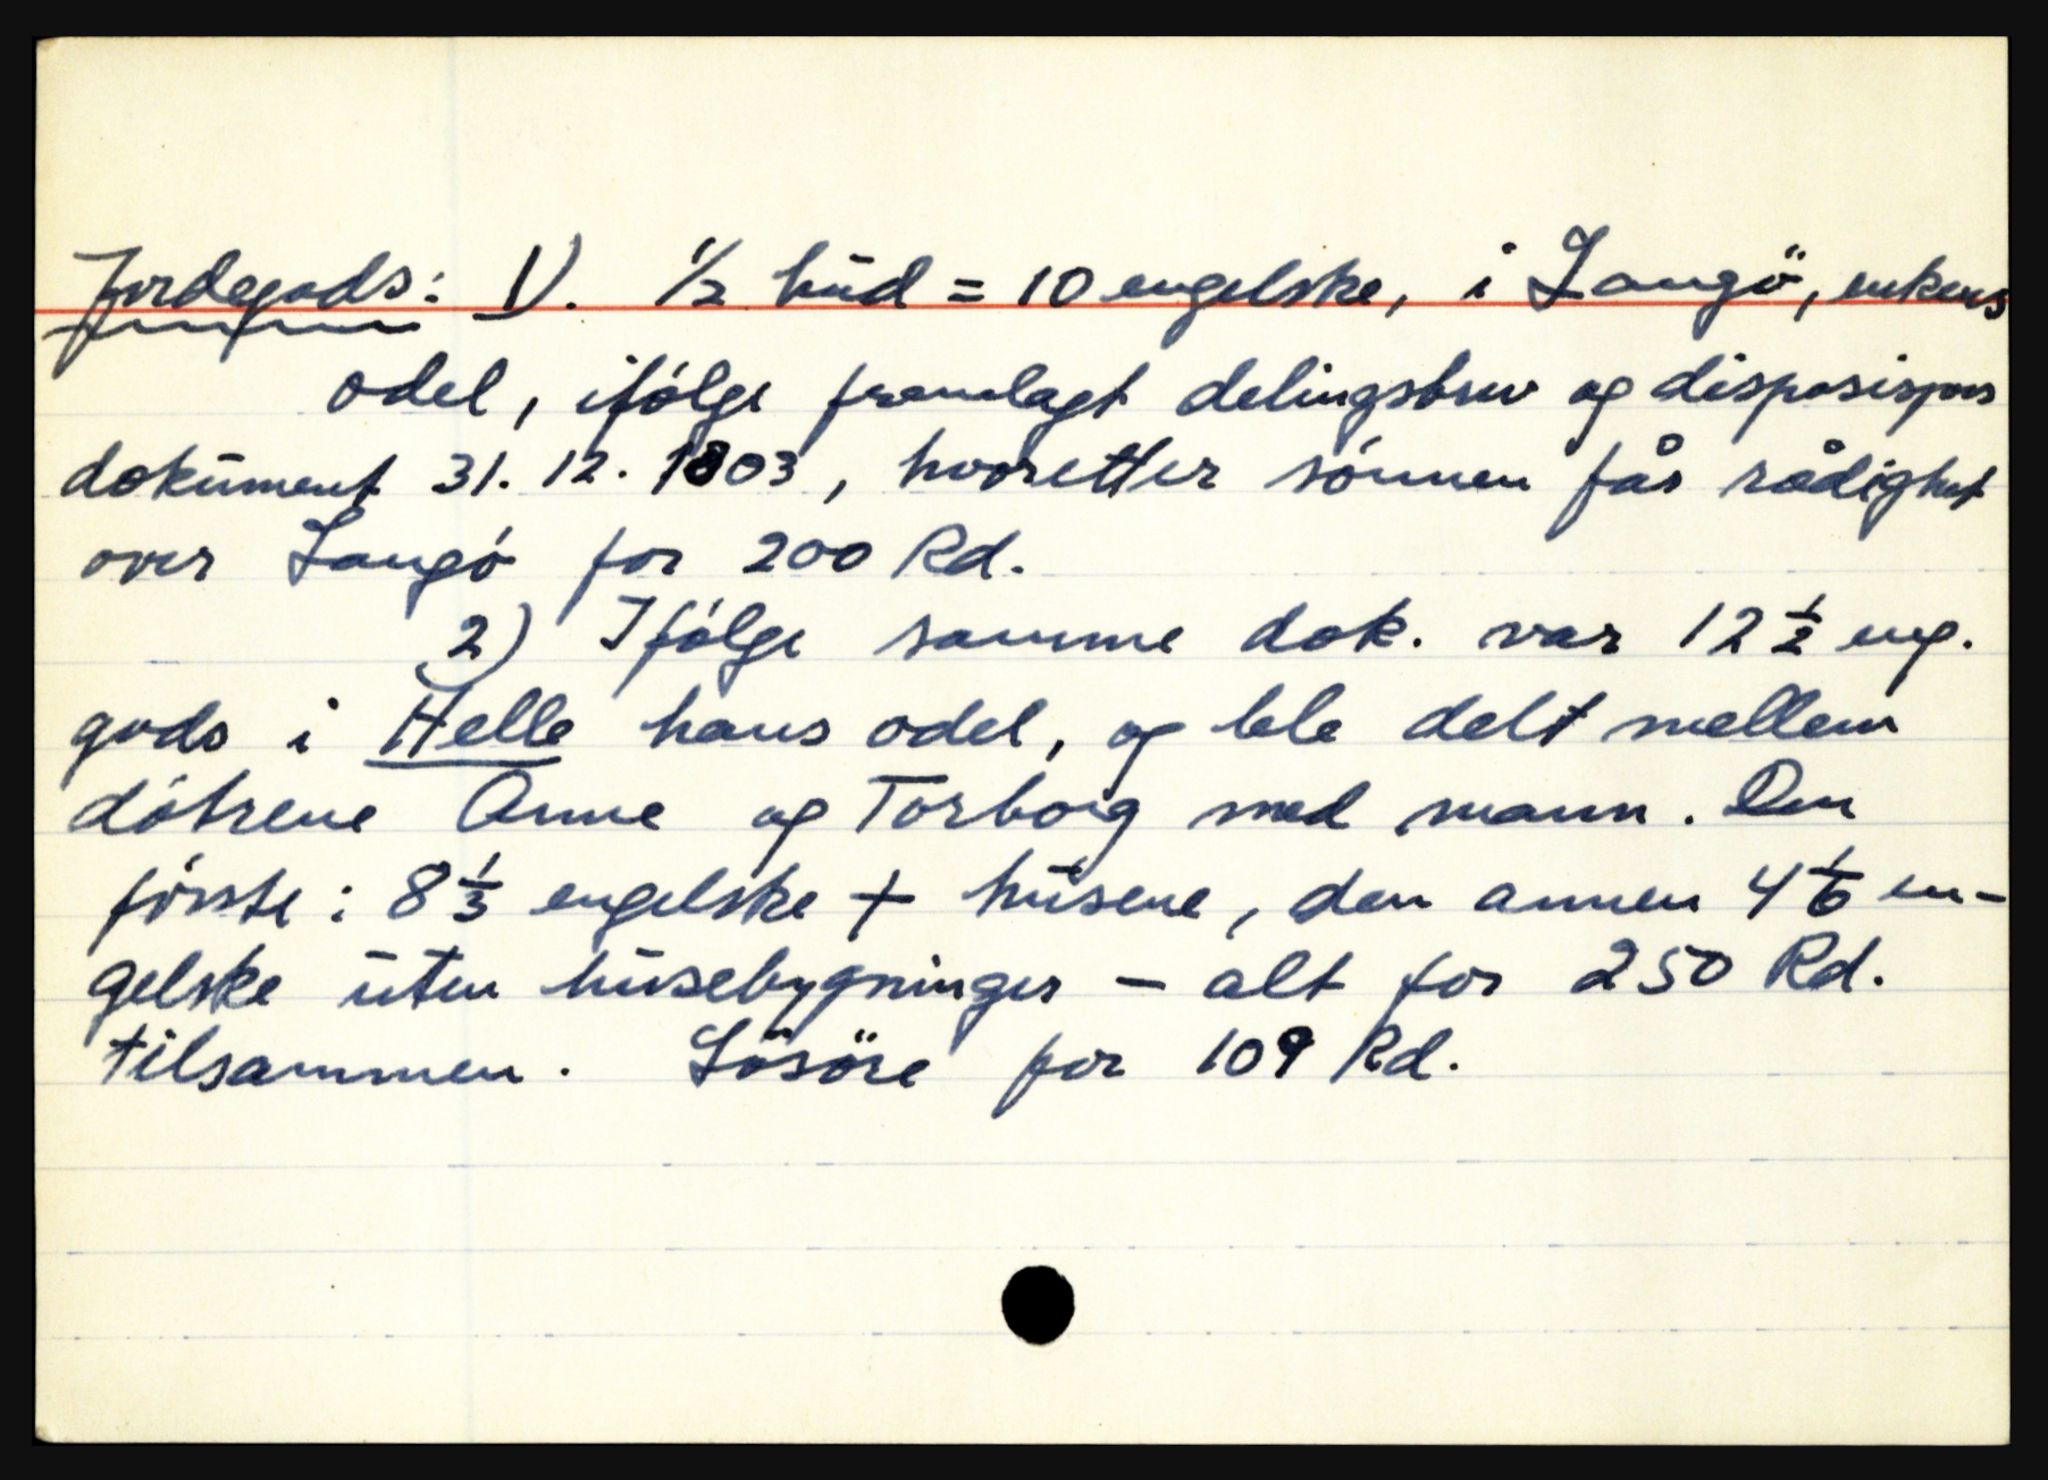 Jordegods: 1). 1/2 hud = 10 engelske, i Langö, enkens
odel, ifölge fremlagt delingsbrev og disposisjons
dokument 31. 12. 1803, hvoretter sönnen får rådighet
over Langö for 200 Rd.
2) Ifölge samme dok. var 12 1/2 eng.
gods i Helle hans odel, og ble delt mellem
döttrene Anne og Torborg med mann. Den
förste: 8 1/3 engelske + husene, den annen 4 1/6 en-
gelske uten husebygninger - alt for 250 Rd.
tilsammen. Lösöre for 109 Rd.